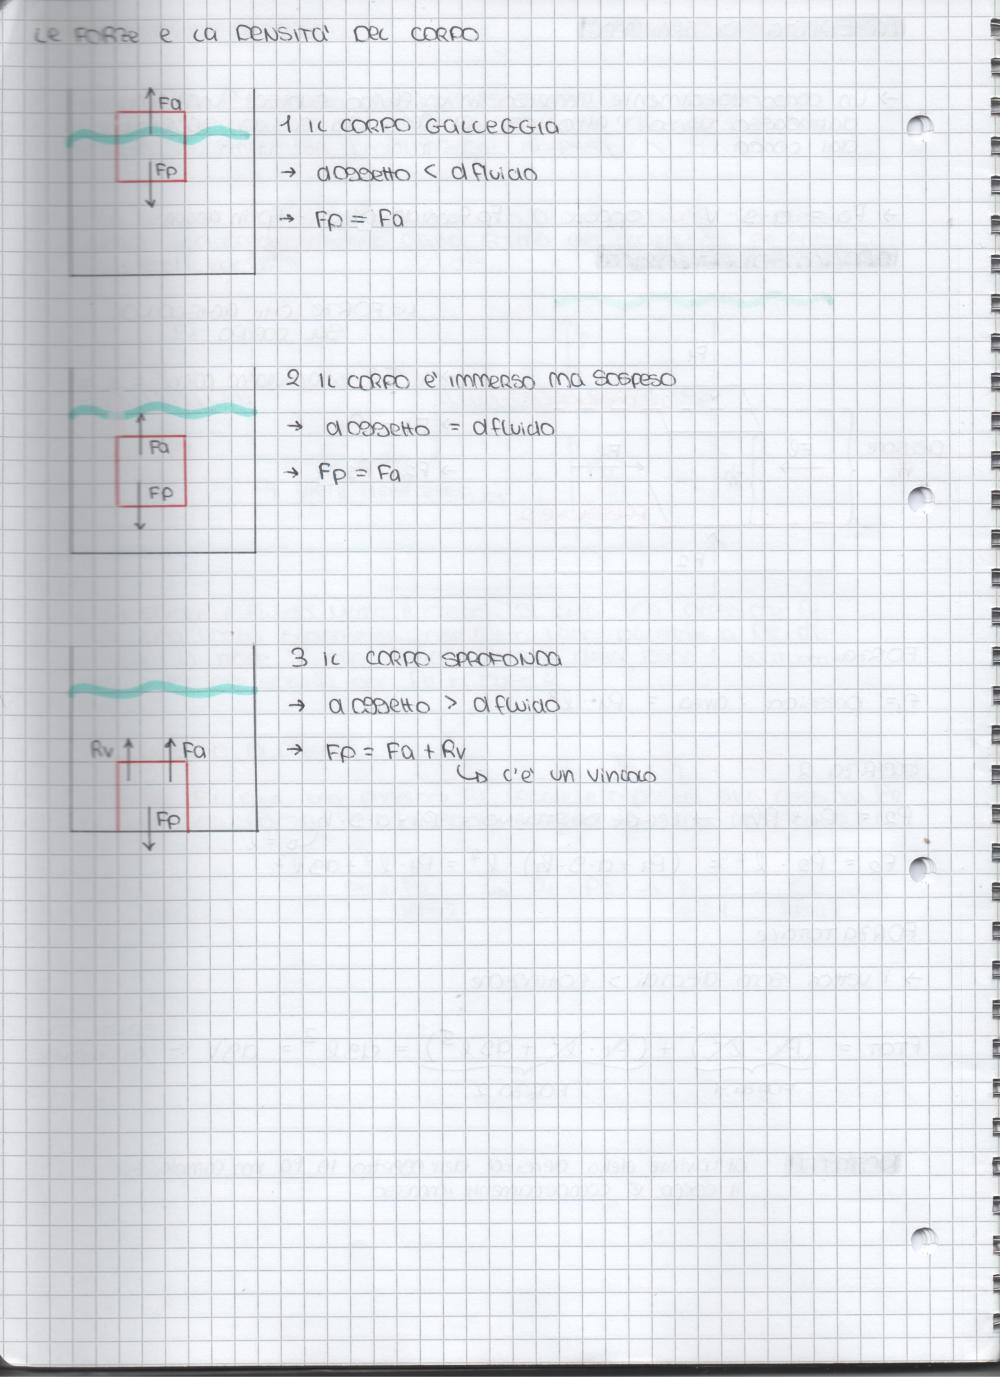 LE FORZE E LA DENSITA' DEL CORPO
Fa
Fp
1 IL CORPO GALLEGGIA
→ d oggetto < d fluido
→ Fp = Fa
Fa
Fp
2 IL CORPO E' IMMERSO MA SOSPESO
→ d oggetto = d fluido
→ Fp = Fa
Rv Fa
Fp
3 IL CORPO SPROFONDA
→ d oggetto > d fluido
→ Fp = Fa + Rv
↳ c'e' un vincolo